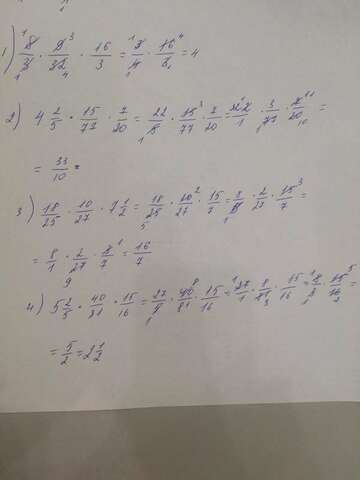 1) 8/3 · 9/32 · 16/3 = 3/4 · 16/3 = 4
2) 4 2/5 · 15/77 · 7/20 = 22/5 · 15/77 · 7/20 = 22/1 · 3/77 · 7/20 =
= 33/10
3) 18/25 · 10/27 · 7 1/2 = 18/25 · 10/27 · 15/7 = 18/5 · 2/27 · 15/7 =
= 8/1 · 2/27 · 1/7 = 16/7
4) 5 2/5 · 40/81 · 15/16 = 27/5 · 40/81 · 15/16 = 27/1 · 8/81 · 15/16 = 8/3 · 15/16 =
= 5/2 = 2 1/2